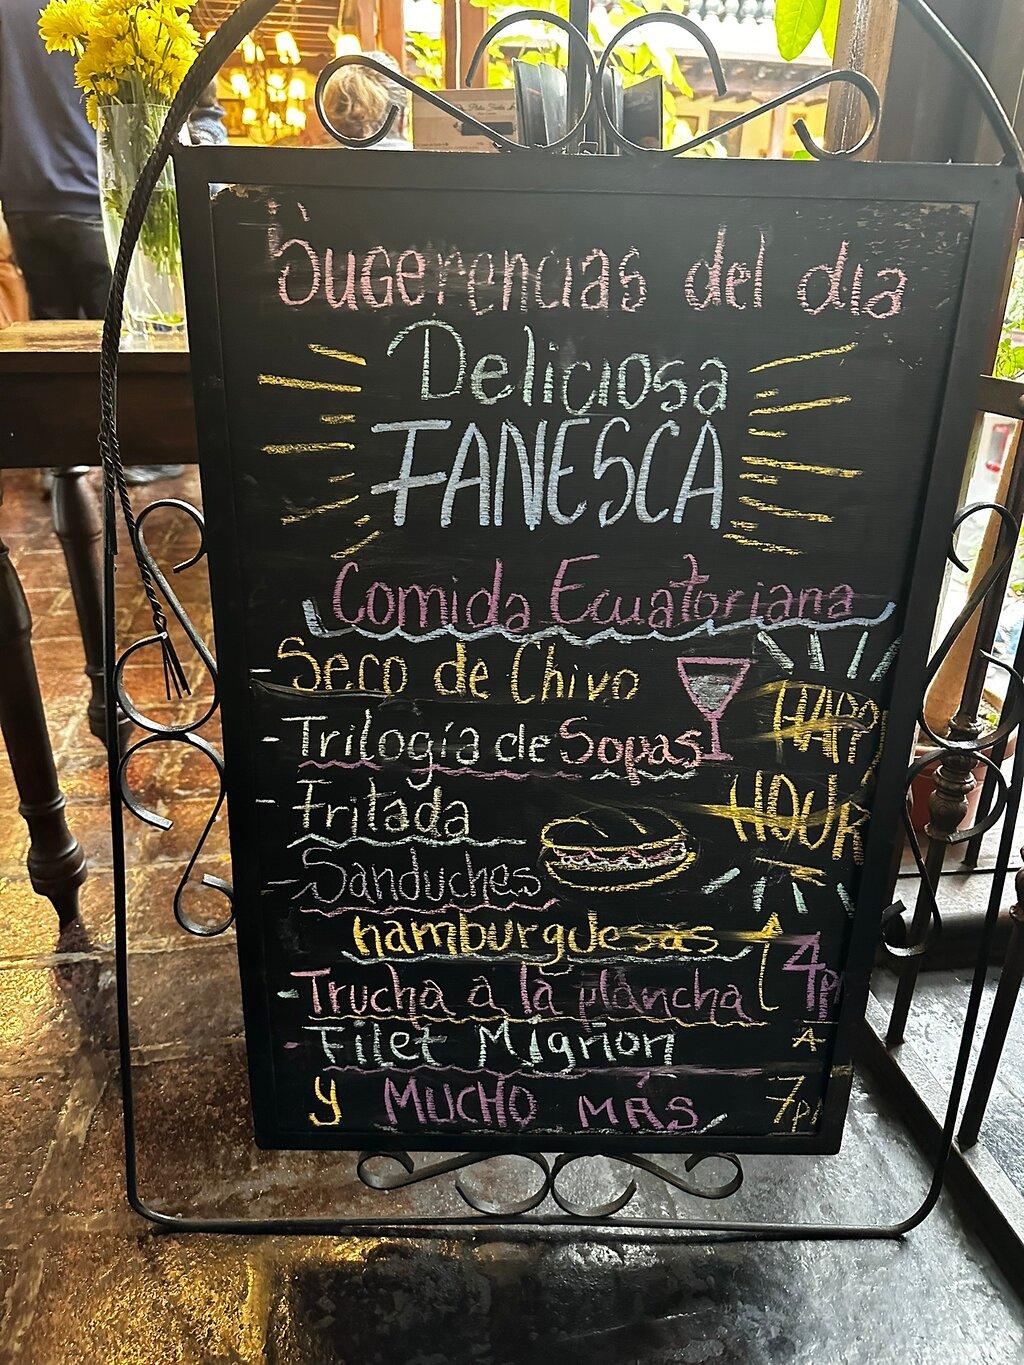 Sugerencias del dia
Deliciosa
FANESCA
Comida Ecuatoriana
- Seco de Chivo
- Trilogía de Sopas
- Fritada
- Sanduches
hamburguesas
- Trucha a la plancha
- Filet Migñon
y MUCHO MÁS
HAPPY
HOUR
4pm
A
7pm